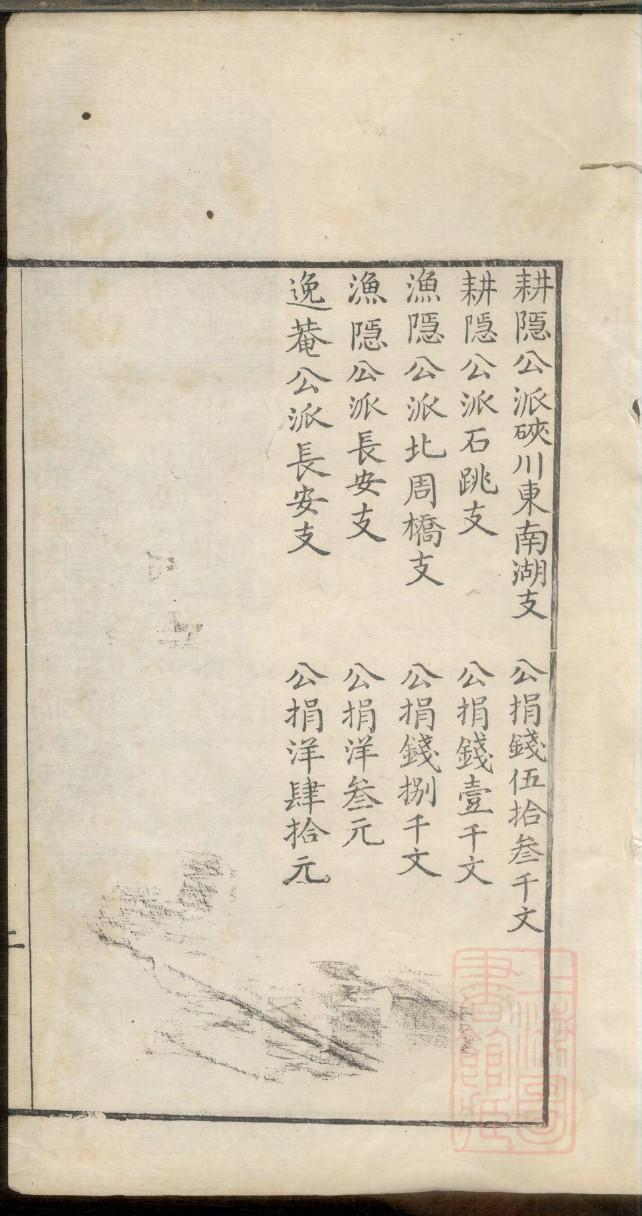 耕隱公派硤川東南湖支 公捐錢伍拾叁千文
耕隱公派石跳支 公捐錢壹千文
漁隱公派北周橋支 公捐錢捌千文
漁隱公派長安支 公捐洋叁元
逸菴公派長安支 公捐洋肆拾元
二
上海圖書館藏